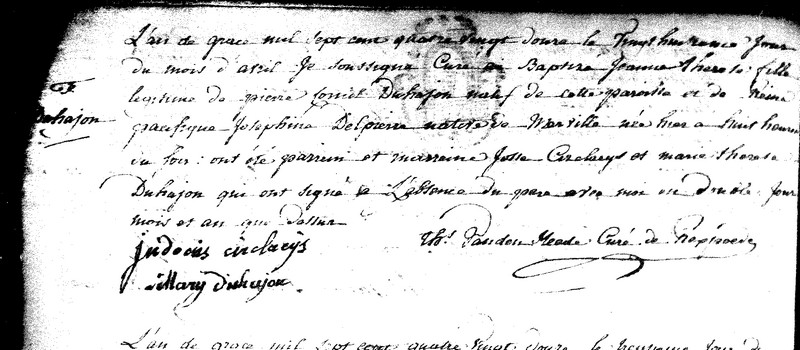 L'an de grace mil sept cent quatre vingt douze le vingt huitieme jour
du mois d'avril je soussigné Curé ai Baptisé Jeanne therese fille
legitime de pierre Duhajon natif de cette paroisse et de Reine
pacifique Josephine Delpierre native de Warville née hier a huit heures
du soir : ont été parrein et marreine Josse Circlaeys et marie therese
Duhajon
Duhajon qui ont signé L'absence du pere avec moi ce jour
mois et an que dessus
judocus circlaeys
Curé de
Mary Duhajon
L'an de grace mil sept cent quatre vingt douze le jour